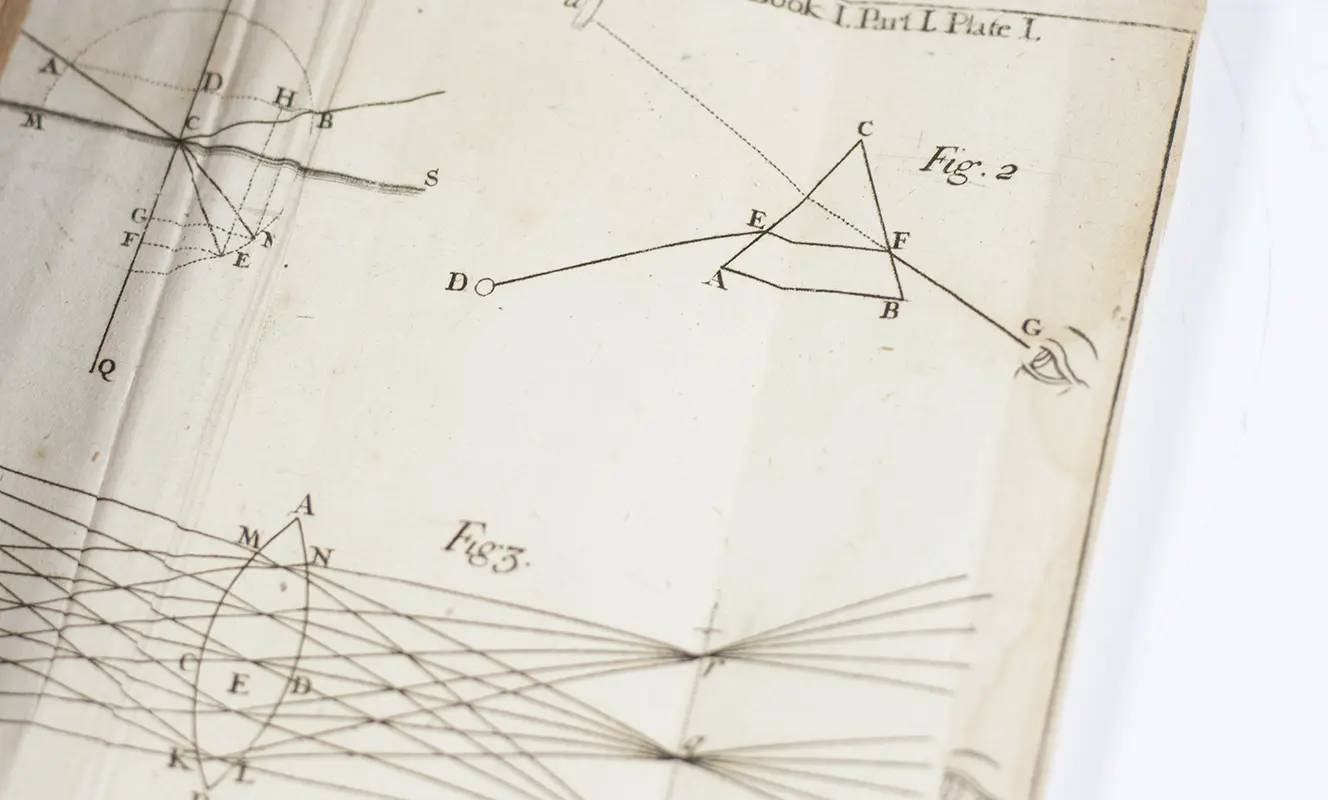 Book I. Part I. Plate I.
A
D
H
B
M
C
S
G
F
E
N
Q
C
Fig. 2
E
F
D
A
B
G
A
M
N
Fig. 3.
C
E
D
K
L
q